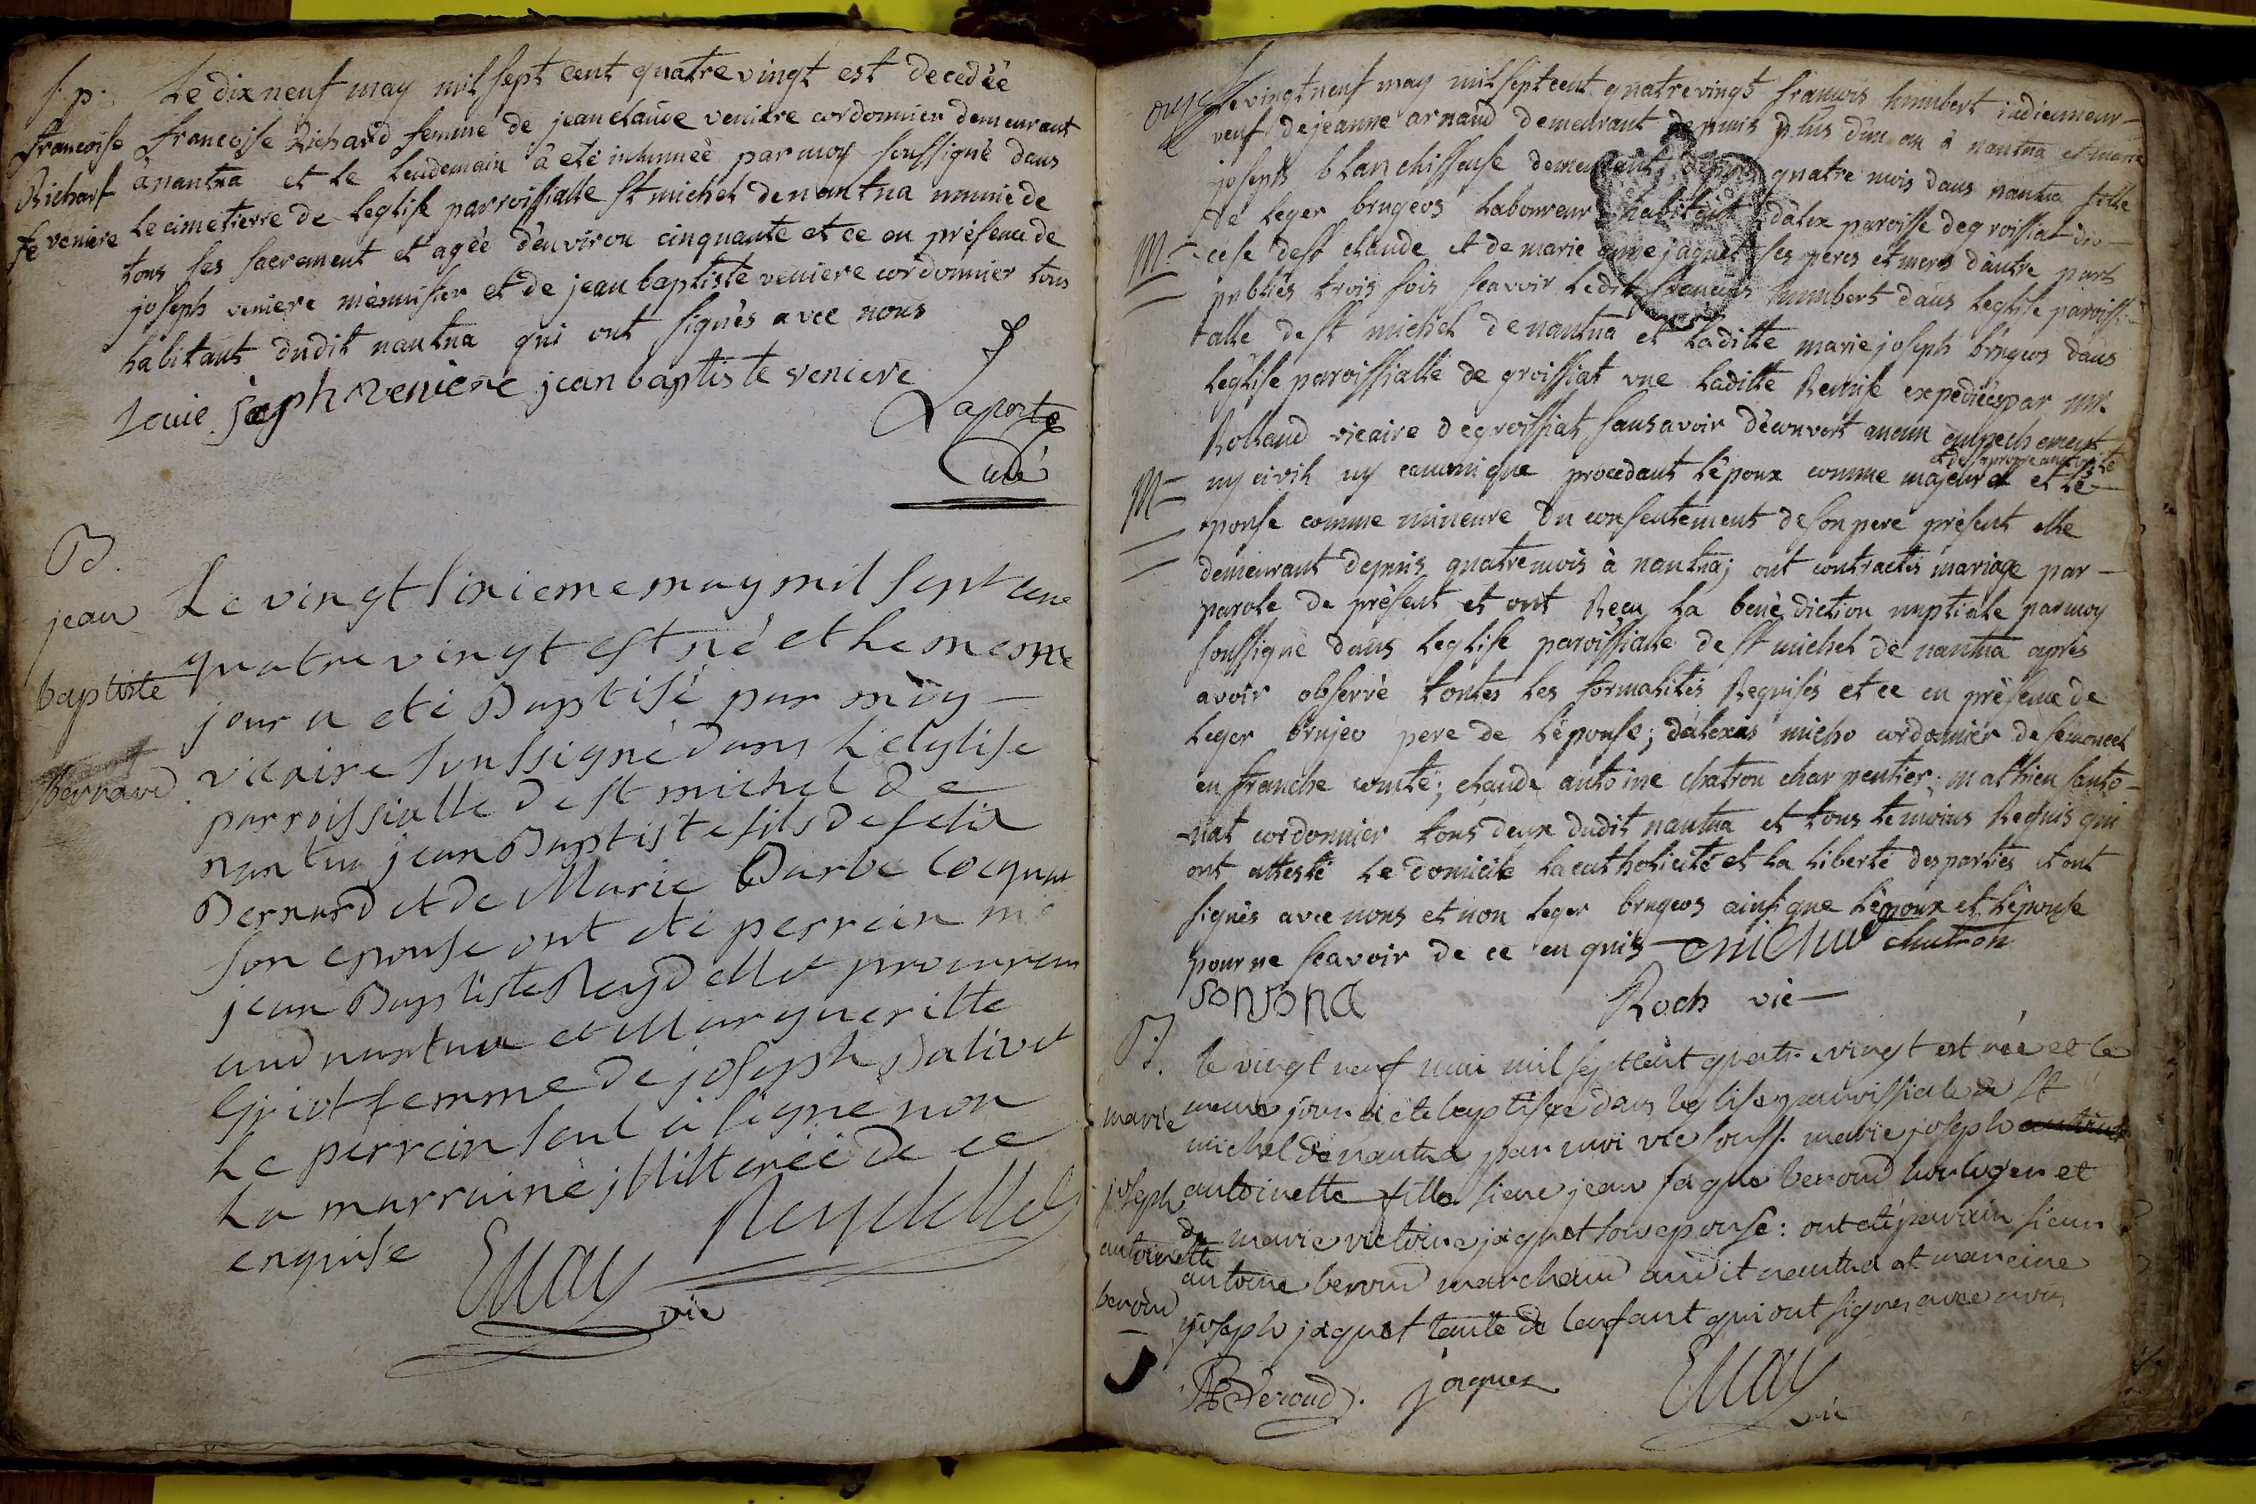 S. p.
francoise
Richard
fe veniere
Le dix neuf may mil sept cent quatre vingt est decedée
francoise Richard femme de jean claude veniere cordonnier demeurant
à nantua et le lendemain à eté inhumeé par moy soussigné dans
le cimetierre de leglise parroissialle st michel de nantua munie de
tous ses sacrement et agée d'environ cinquante et ce en présence de
joseph veniere ménuisier et de jean baptiste veniere cordonnier tous
habitants dudit nantua qui ont signés avec nous
Louie joseph veniere jean baptiste veniere
Laporte
Curé
B.
jean
baptiste
Bernard
Le vingt sixieme may mil sept cent
quatre vingt est né et le meme
jour a eté Baptisé par moy
vicaire soussigné dans L'eglise
parroissialle de st michel de
nantua jean Baptiste fils de felix
Bernard et de Marie Barbe
son epouse ont eté perrein
jean Baptiste Reydellet procureur
aud nantua et Marguerite
griot femme de joseph
Le perrein seul a signe non
La marraine jllitterée de ce
enquise
Reydellet
vic
Le vingt neuf may mil sept cent quatre vingt francois humbert
veuf de jeanne arnaud demeurant depuis plus d'un an à nantua et marie
joseph blanchisseuse demeurant depuis quatre mois dans nantua fille
de leger brugeos laboureur habitant d'alex paroisse de groissiat dio-
M. cese de st claude et de marie jaquet ses peres et meres d'autre part
publiés trois fois scavoir ledit francois humbert dans leglise paroissi-
alle de st michel de nantua et laditte marie joseph brugeos dans
leglise paroissialle de groissiat vue laditte Remise expediée par mr.
Rolland vicaire de groissiat sans avoir découvert aucun empechement
et de sa propre authorité
M ny civil ny canonique procedant l'époux comme majeur et l'é-
pouse comme mineure du consentement de son pere présent elle
demeurant depuis quatre mois à nantua; ont contractés mariage par-
parole de présent et ont Recu la bénédiction nuptiale par moy
soussigné dans leglise paroissialle de st michel de nantua après
avoir observé toutes les formalités Requises et ce en présence de
leger brujeo pere de l'épouse; d'alexis micho cordonnier de semoncel
en franche comté; claude antoine chatron charpentier; mathieu santo-
nat cordonnier tous deux dudit nantua et tous temoins Requis qui
ont attesté le domicile la catholicité et la liberté des parties et ont
signés avec nous et non leger brugeos ainsi que l'époux et l'épouse
pour ne scavoir de ce enquis micho chatron
sonsona Roch vic
B.
marie
joseph
antoinette
beroud
le vingt neuf mai mil septcent quatre vingt est née et le
meme jour a été baptisée dans leglise parroissiale de St
michel de nantua par moi vic souss. marie joseph
antoinette fille sieur jean jaque beroud horloger et
de marie victoire jaquet son epouse: ont eté parrain sieur
antoine beroud marchand audit nantua et marreine
joseph jaquet tante de lenfant qui ont signes avec nous
Beroud. jaquet
vic